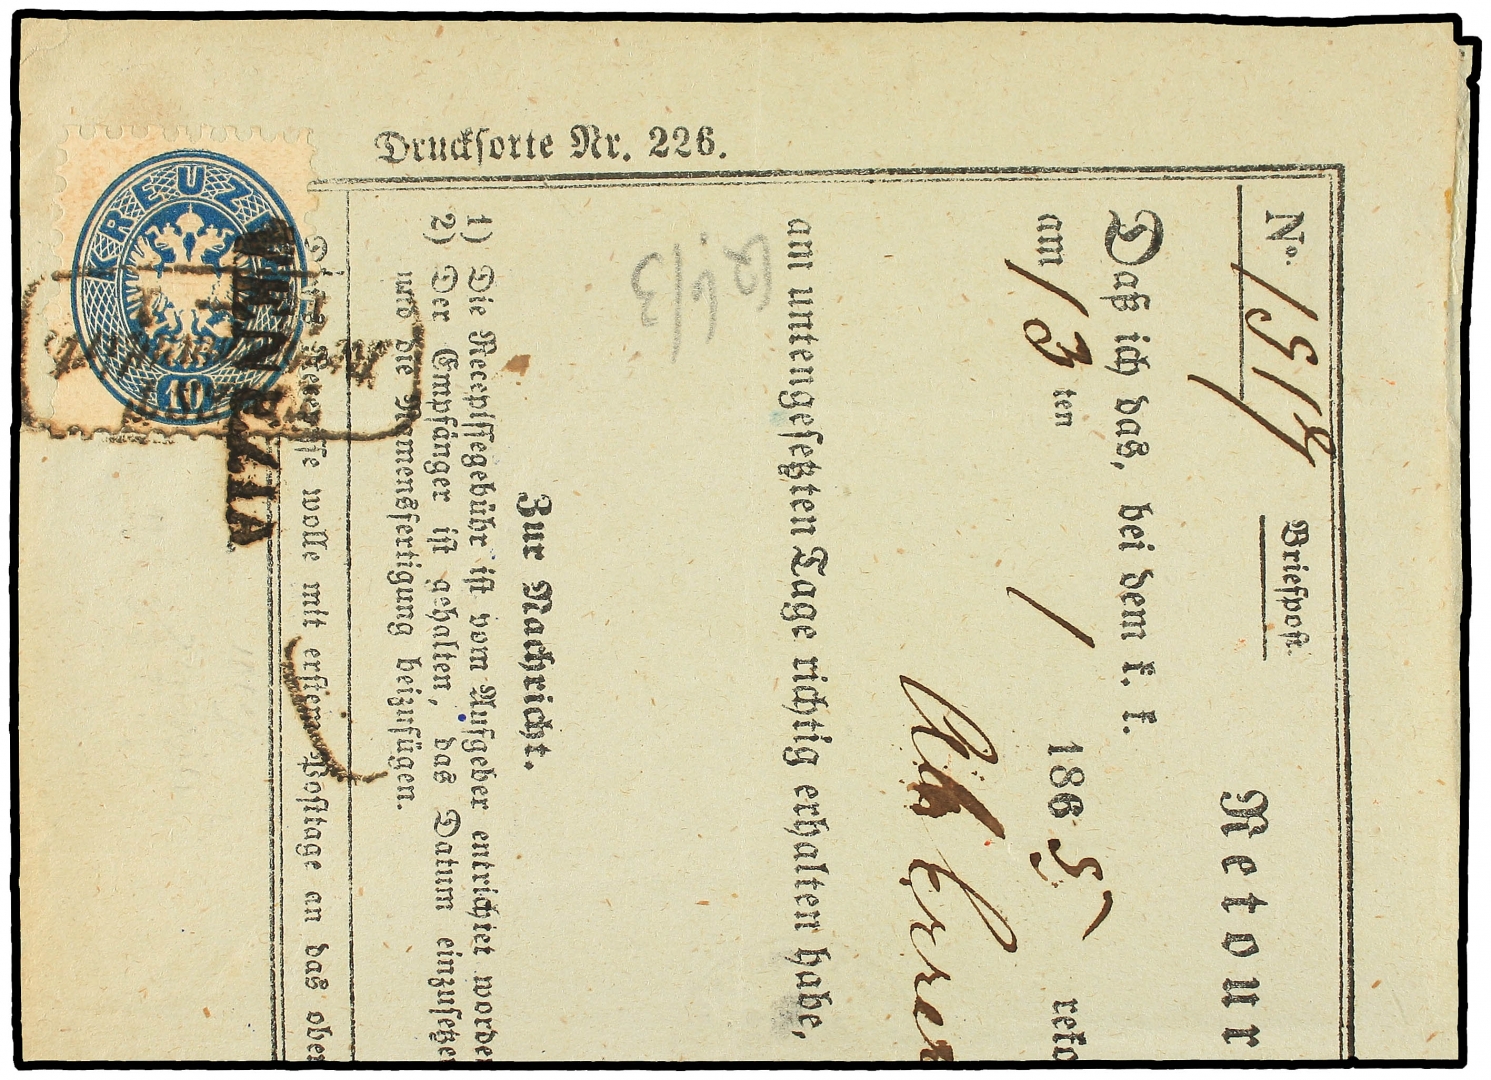 Drucksorte Nr. 226.
No. 1519 Briefpost. Retour
Daß ich das, bei dem k. k.
am 13 ten 1 1865 reko
am untengesetzten Tage richtig erhalten habe,
Zur Nachricht.
1) Die Recepissegebühr ist vom Aufgeber entrichtet worde
2) Der Empfänger ist gehalten, das Datum einzusetze
und die Namensfertigung beizufügen.
wolle mit erstem Posttage an das ober
KREUZER
10